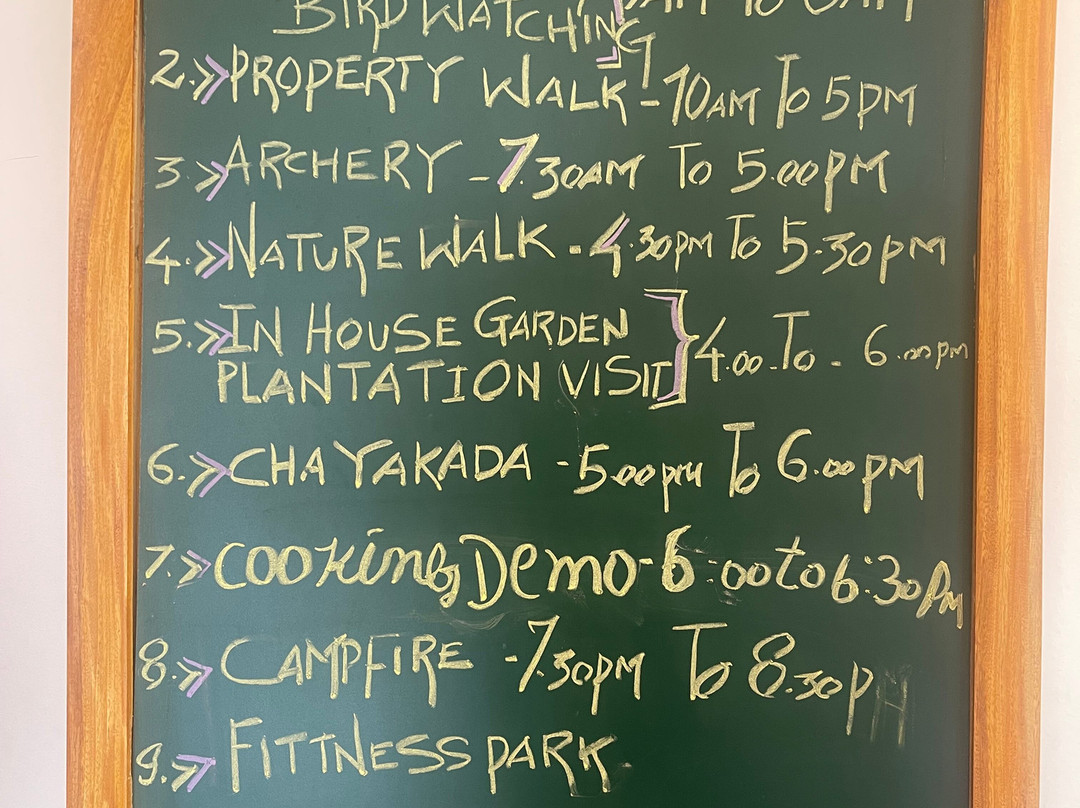 BIRD WATCHING
2.>> PROPERTY WALK - 10AM TO 5PM
3.>> ARCHERY - 7.30AM TO 5.00PM
4.>> NATURE WALK - 4.30PM TO 5.30PM
5.>> IN HOUSE GARDEN
PLANTATION VISIT } 4.00 - TO - 6.00pm
6.>> CHAYAKADA - 5.00pm TO 6.00PM
7.>> COOKing Demo - 6:00 to 6:30Pm
8.>> CAMPFIRE - 7.30PM TO 8.30PM
9.>> FITTNESS PARK.